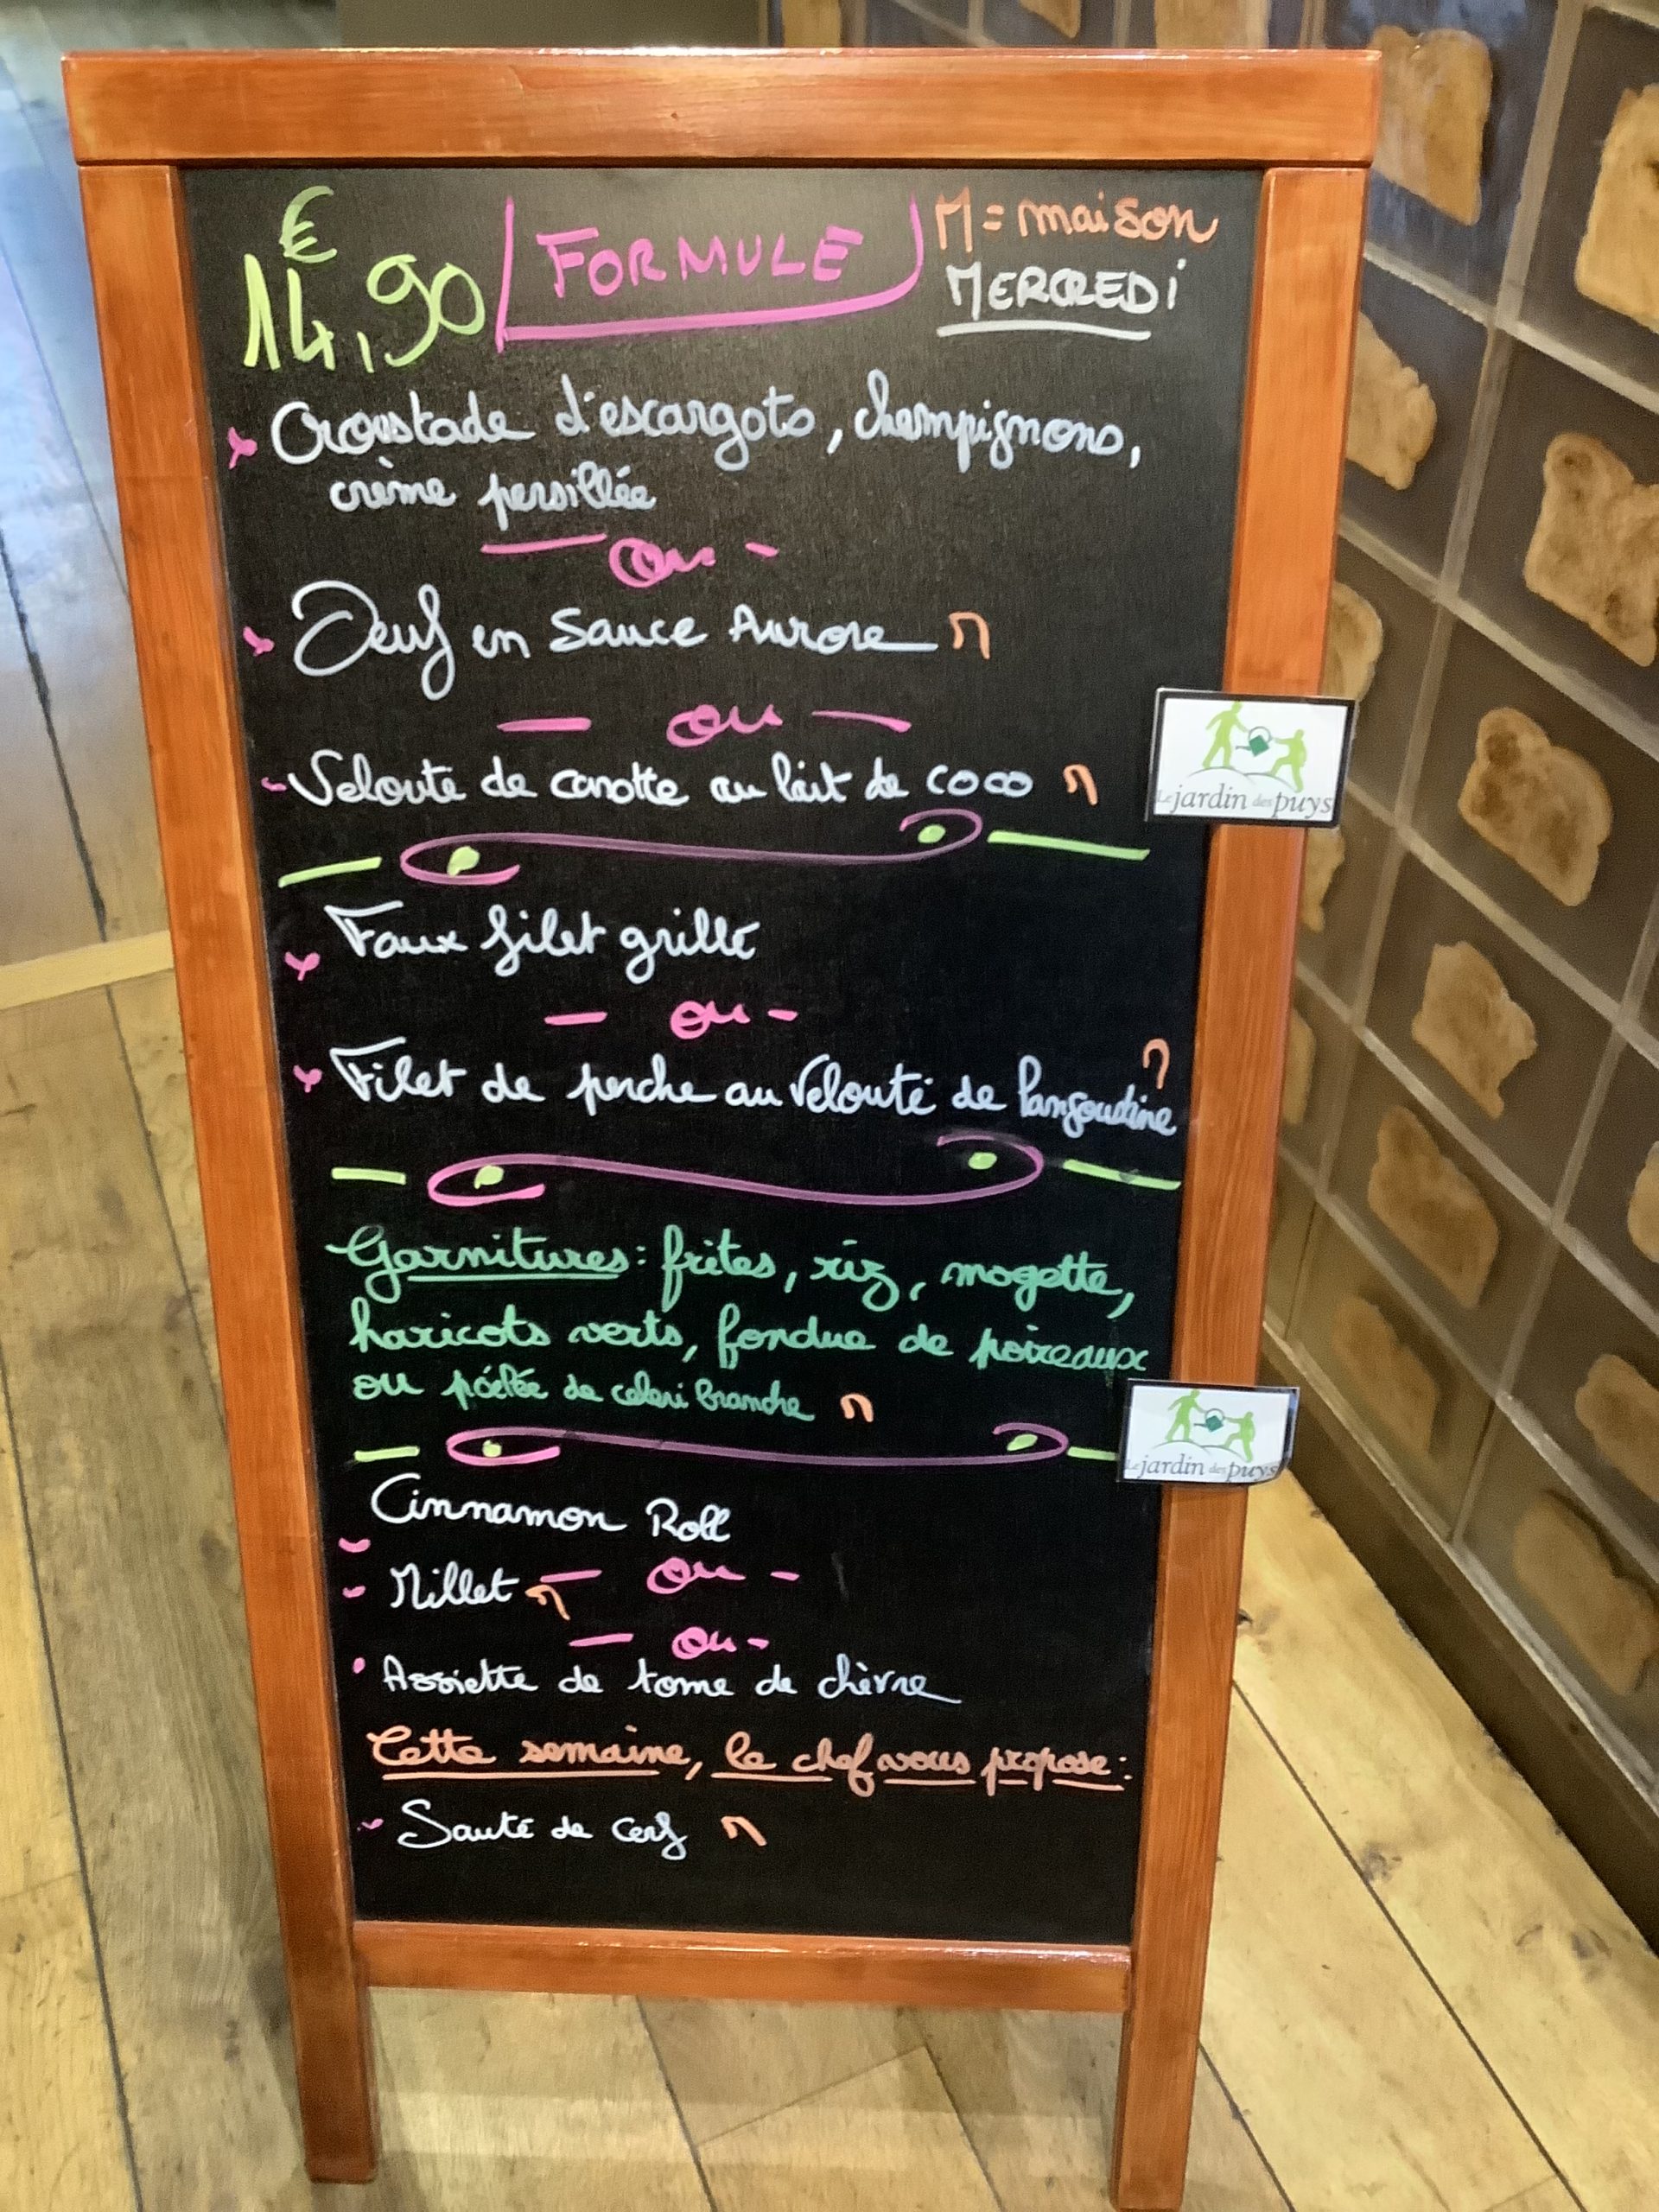 €
14,90 FORMULE M = maison
MERCREDi
Croustade d'escargots, champignons,
crème persillée
- ou -
Oeuf en Sauce Aurore M
- ou -
Velouté de carotte au lait de coco M
Le jardin des puys
Faux filet grillé
- ou -
Filet de perche au Velouté de langoustine M
Garnitures : frites, riz, mogette,
haricots verts, fondue de poireaux
ou poélée de celeri branche M
Le jardin des puys
Cinnamon Roll
- ou -
Millet M
- ou -
Assiette de tome de chèvre
Cette semaine, le chef vous propose :
Sauté de Cerf M